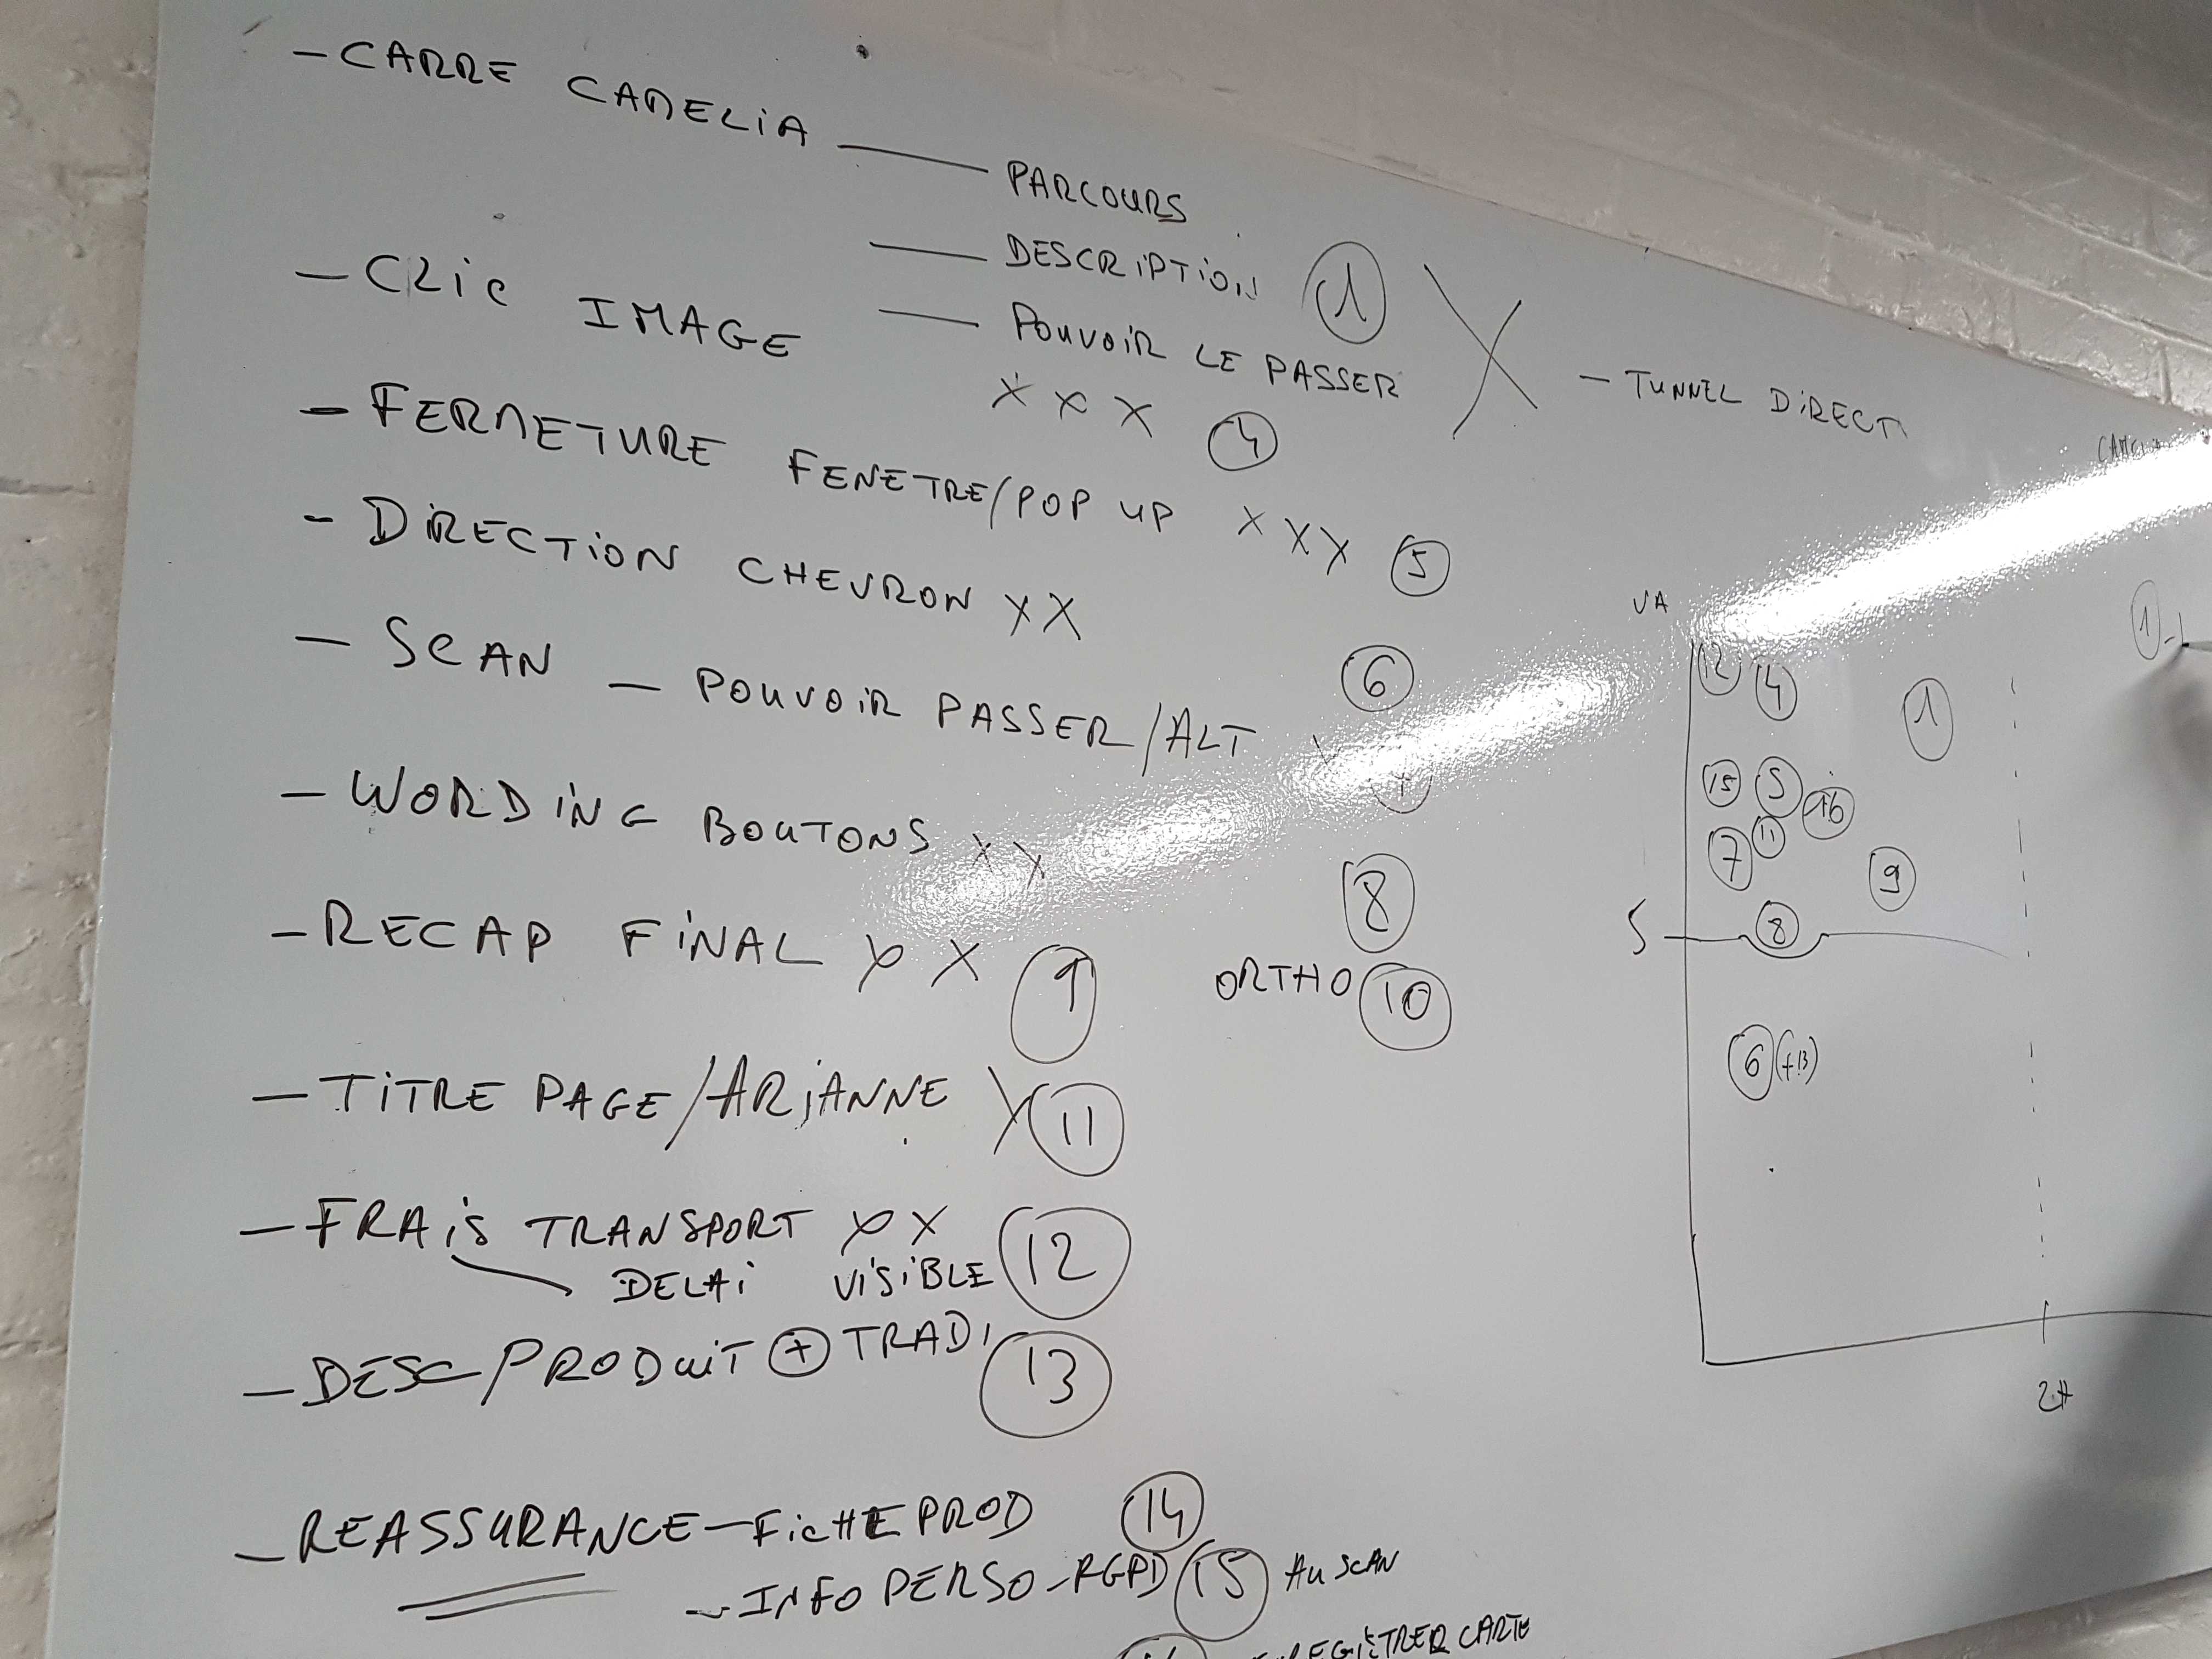 - CARRE CAMELIA — PARCOURS
— DESCRIPTION 1
— POUVOIR LE PASSER X - TUNNEL DIRECT
- CLIC IMAGE X X X 4
- FERMETURE FENETRE/POP UP X X X 5
- DIRECTION CHEVRON X X 6
- SCAN - POUVOIR PASSER/ALT
- WORDING BOUTONS X X 8
- RECAP FINAL X X 9
ORTHO 10
- TITRE PAGE/ARIANNE X 11
- FRAIS TRANSPORT X X
DELAI VISIBLE 12
- DESC/PRODUIT + TRAD 13
- REASSURANCE - FICHE PROD 14
- INFO PERSO - RGPD 15 AU SCAN
CARTE
VA
12 4 1
15 5 16
7 11 9
S 8
6 (+13)
2H
1 -